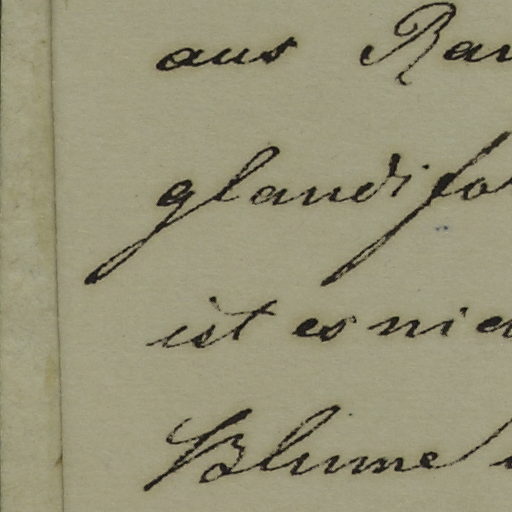 aus Ran
glandifo
ist es nic
Blume